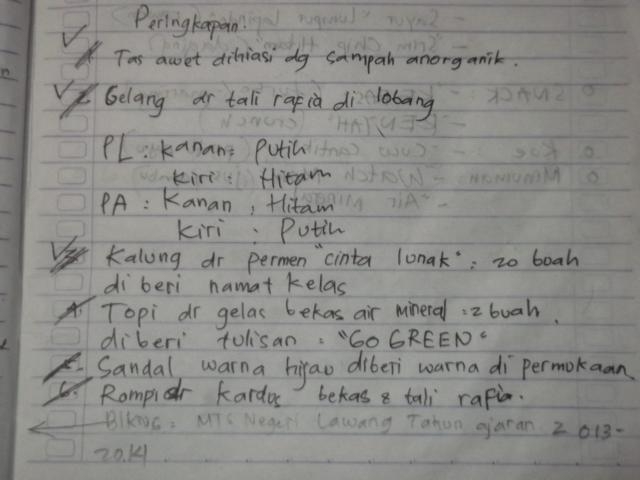 Peringkapan.
1. Tas awet dihiasi dg sampah anorganik.
2. Gelang dr tali rafia di lobang
PL : Kanan : Putih
Kiri : Hitam
PA : Kanan : Hitam
Kiri : Putih
3. Kalung dr permen "cinta lunak" : 20 buah
di beri namat kelas
4. Topi dr gelas bekas air mineral : 2 buah.
diberi tulisan : "GO GREEN"
5. Sandal warna hijau diberi warna di permukaan
6. Rompi dr kardus bekas & tali rafia.
MTS Negeri Lawang Tahun ajaran 2013-
2014